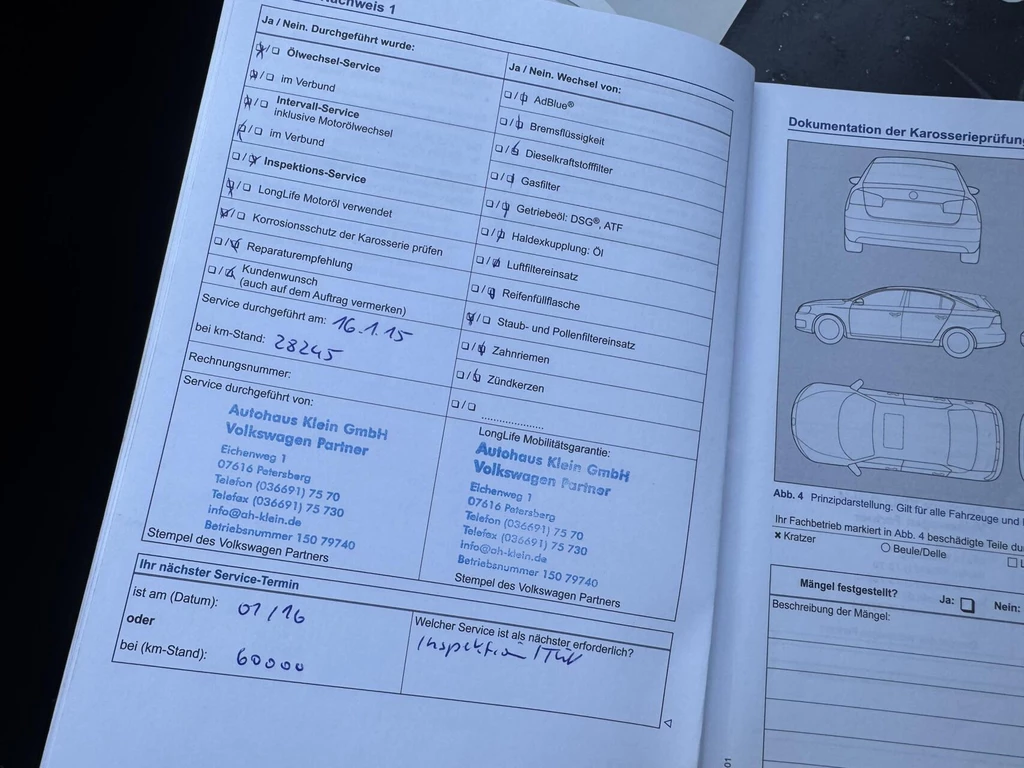 Nachweis 1
Ja / Nein. Durchgeführt wurde:
Ölwechsel-Service
im Verbund
Intervall-Service
inklusive Motorölwechsel
im Verbund
Inspektions-Service
LongLife Motoröl verwendet
Korrosionsschutz der Karosserie prüfen
Reparaturempfehlung
Kundenwunsch
(auch auf dem Auftrag vermerken)
Service durchgeführt am: 16.1.15
bei km-Stand: 28245
Rechnungsnummer:
Service durchgeführt von:
Autohaus Klein GmbH
Volkswagen Partner
Eichenweg 1
07616 Petersberg
Telefon (036691) 75 70
Telefax (036691) 75 730
info@ah-klein.de
Betriebsnummer 150 79740
Stempel des Volkswagen Partners
Ja / Nein. Wechsel von:
AdBlue®
Bremsflüssigkeit
Dieselkraftstofffilter
Gasfilter
Getriebeöl: DSG®, ATF
Haldexkupplung: Öl
Luftfiltereinsatz
Reifenfüllflasche
Staub- und Pollenfiltereinsatz
Zahnriemen
Zündkerzen
....................
LongLife Mobilitätsgarantie:
Autohaus Klein GmbH
Volkswagen Partner
Eichenweg 1
07616 Petersberg
Telefon (036691) 75 70
Telefax (036691) 75 730
info@ah-klein.de
Betriebsnummer 150 79740
Stempel des Volkswagen Partners
Ihr nächster Service-Termin
ist am (Datum): 01/16
oder
bei (km-Stand): 60000
Welcher Service ist als nächster erforderlich?
Inspektion
Dokumentation der Karosserieprüfung
Abb. 4 Prinzipdarstellung. Gilt für alle Fahrzeuge und
Ihr Fachbetrieb markiert in Abb. 4 beschädigte Teile
Kratzer
Beule/Delle
Mängel festgestellt? Ja: Nein:
Beschreibung der Mängel:
01